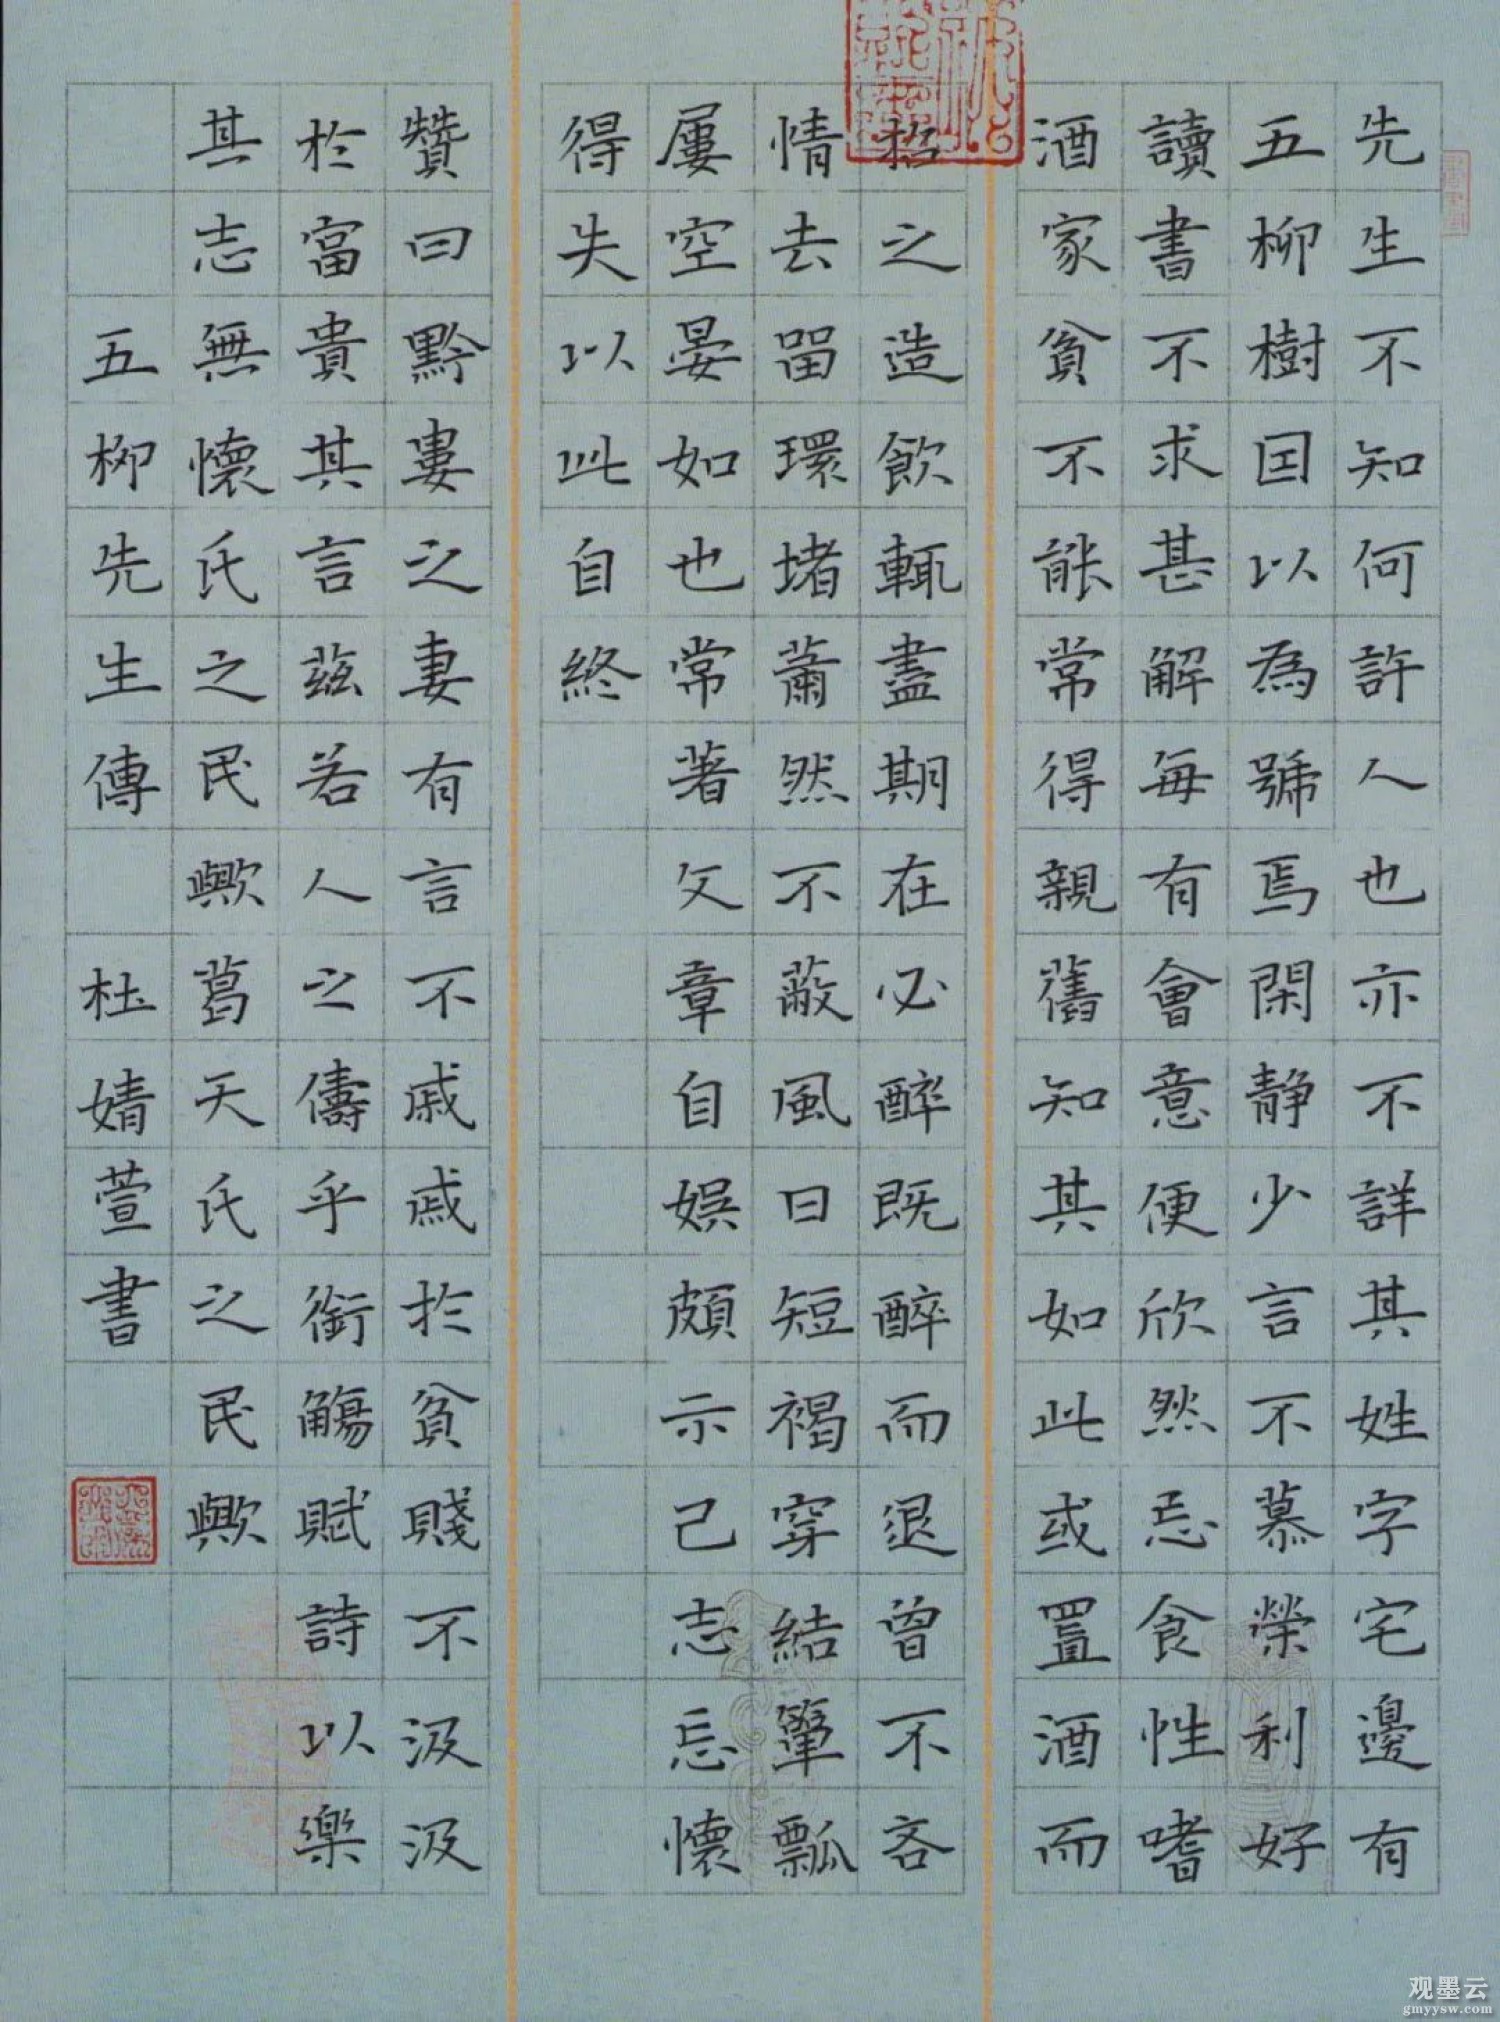 先生不知何許人也亦不詳其姓字宅邊有
五柳樹因以為號焉閑靜少言不慕榮利好
讀書不求甚解每有會意便欣然忘食性嗜
酒家貧不能常得親舊知其如此或置酒而
招之造飲輒盡期在必醉既醉而退曾不吝
情去留環堵蕭然不蔽風日短褐穿結簞瓢
屢空晏如也常著文章自娛頗示己志忘懷
得失以此自終
贊曰黔婁之妻有言不戚戚於貧賤不汲汲
於富貴其言茲若人之儔乎銜觴賦詩以樂
其志無懷氏之民歟葛天氏之民歟
五柳先生傳 杜婧萱書
观墨云
gmyysw.com